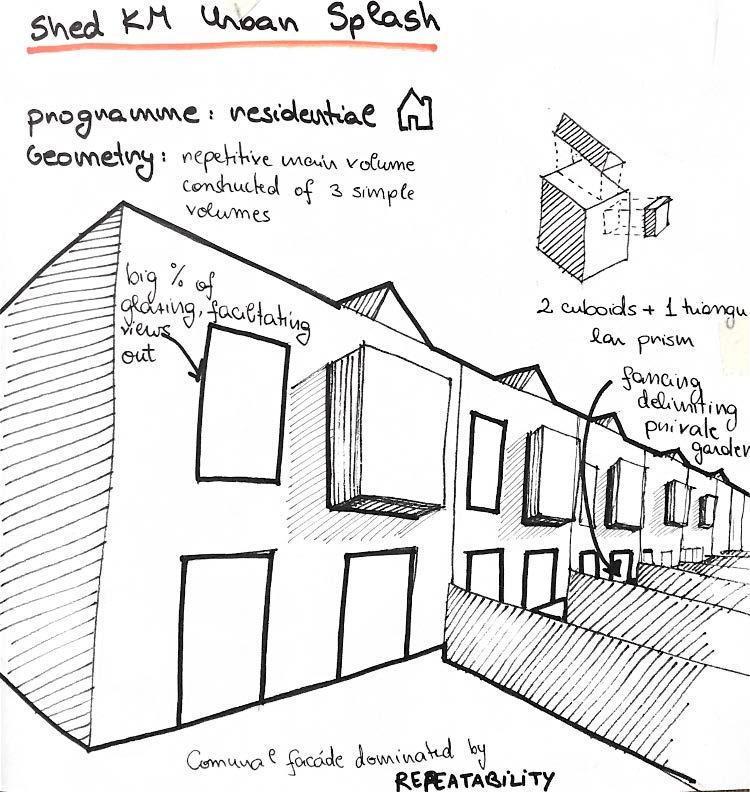 Shed KM Urban Splash
programme: residential
Geometry: repetitive main volume
constructed of 3 simple
volumes
big % of
glazing, facilitating
views
out
2 cuboids + 1 triangu
lar prism
fancing
delimiting
private
garden
Comunal facáde dominated by
REPEATABILITY